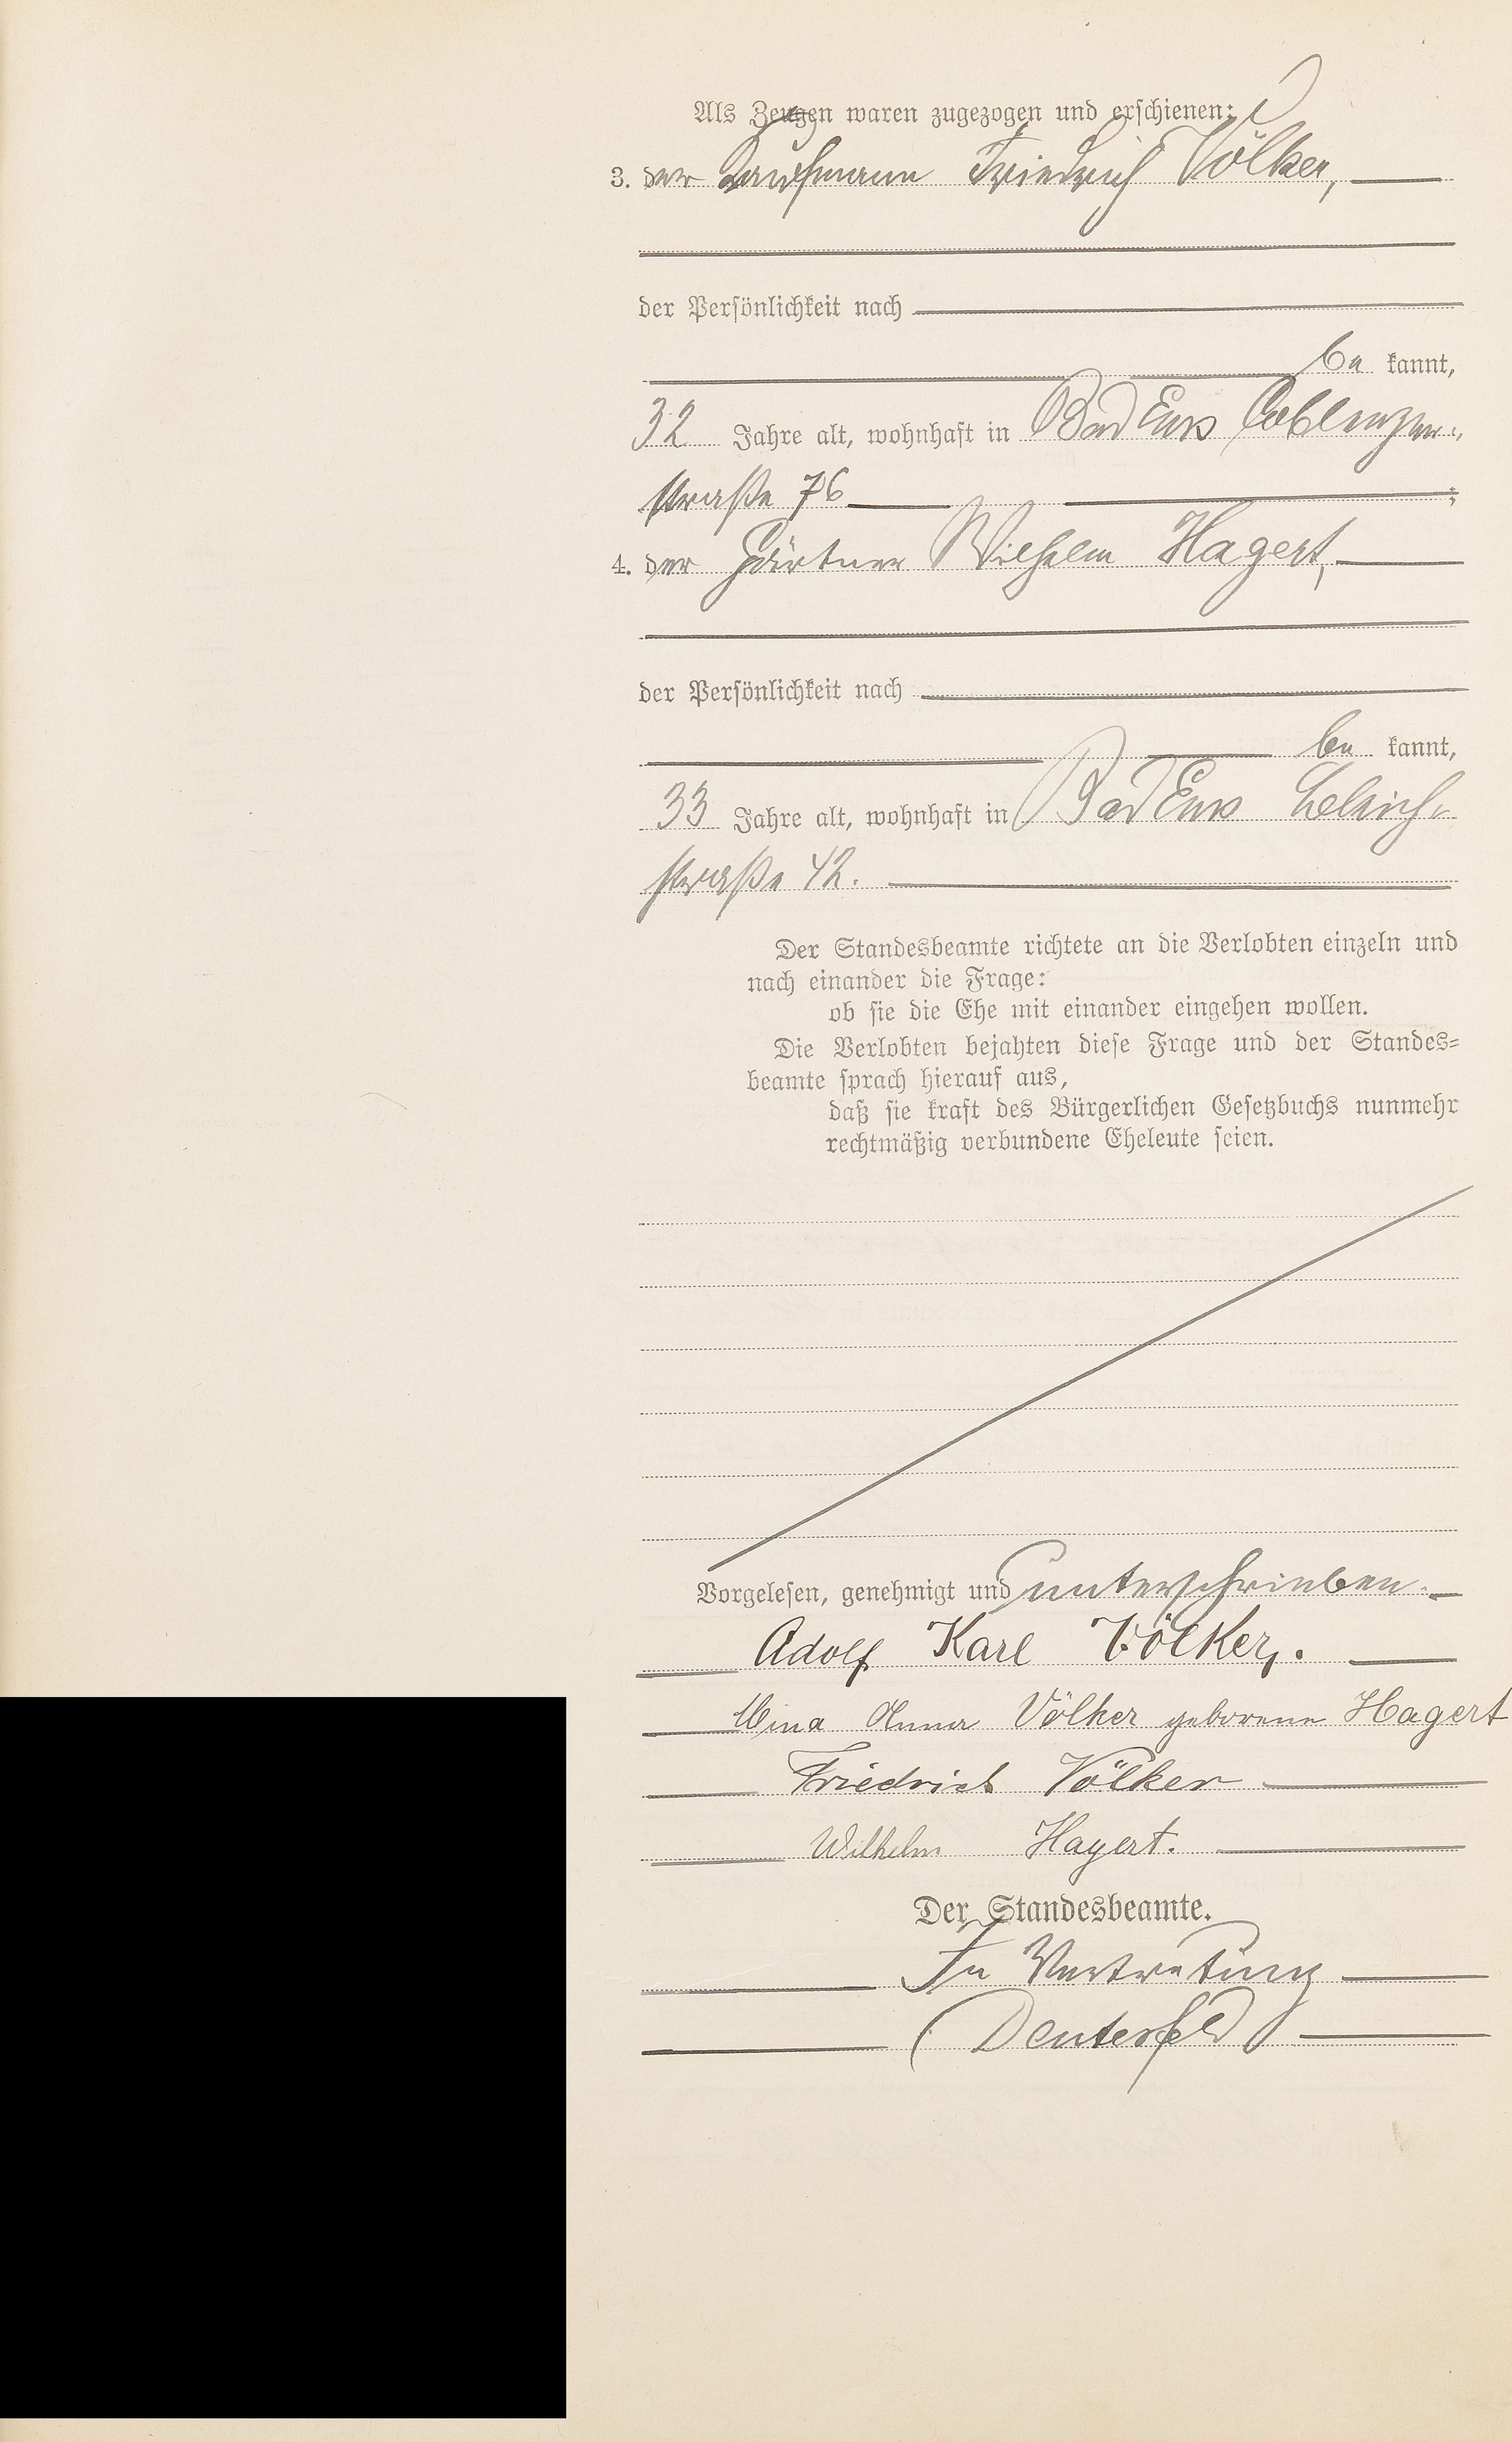 Als Zeugen waren zugezogen und erschienen:
3. der Kaufmann Friedrich Völker,
der Persönlichkeit nach
be kannt,
32 Jahre alt, wohnhaft in Bad Ems Coblenzer-
straße 76
;
4. der Gärtner Wilhelm Hagert,
der Persönlichkeit nach
be kannt,
33 Jahre alt, wohnhaft in Bad Ems
straße 42.
Der Standesbeamte richtete an die Verlobten einzeln und
nach einander die Frage:
ob sie die Ehe mit einander eingehen wollen.
Die Verlobten bejahten diese Frage und der Standes-
beamte sprach hierauf aus,
daß sie kraft des Bürgerlichen Gesetzbuchs nunmehr
rechtmäßig verbundene Eheleute seien.
Vorgelesen, genehmigt und unterschrieben.
Adolf Karl Völker.
Mina Anna Völker geborene Hagert
Friedrich Völker
Wilhelm Hagert.
Der Standesbeamte.
In Vertretung